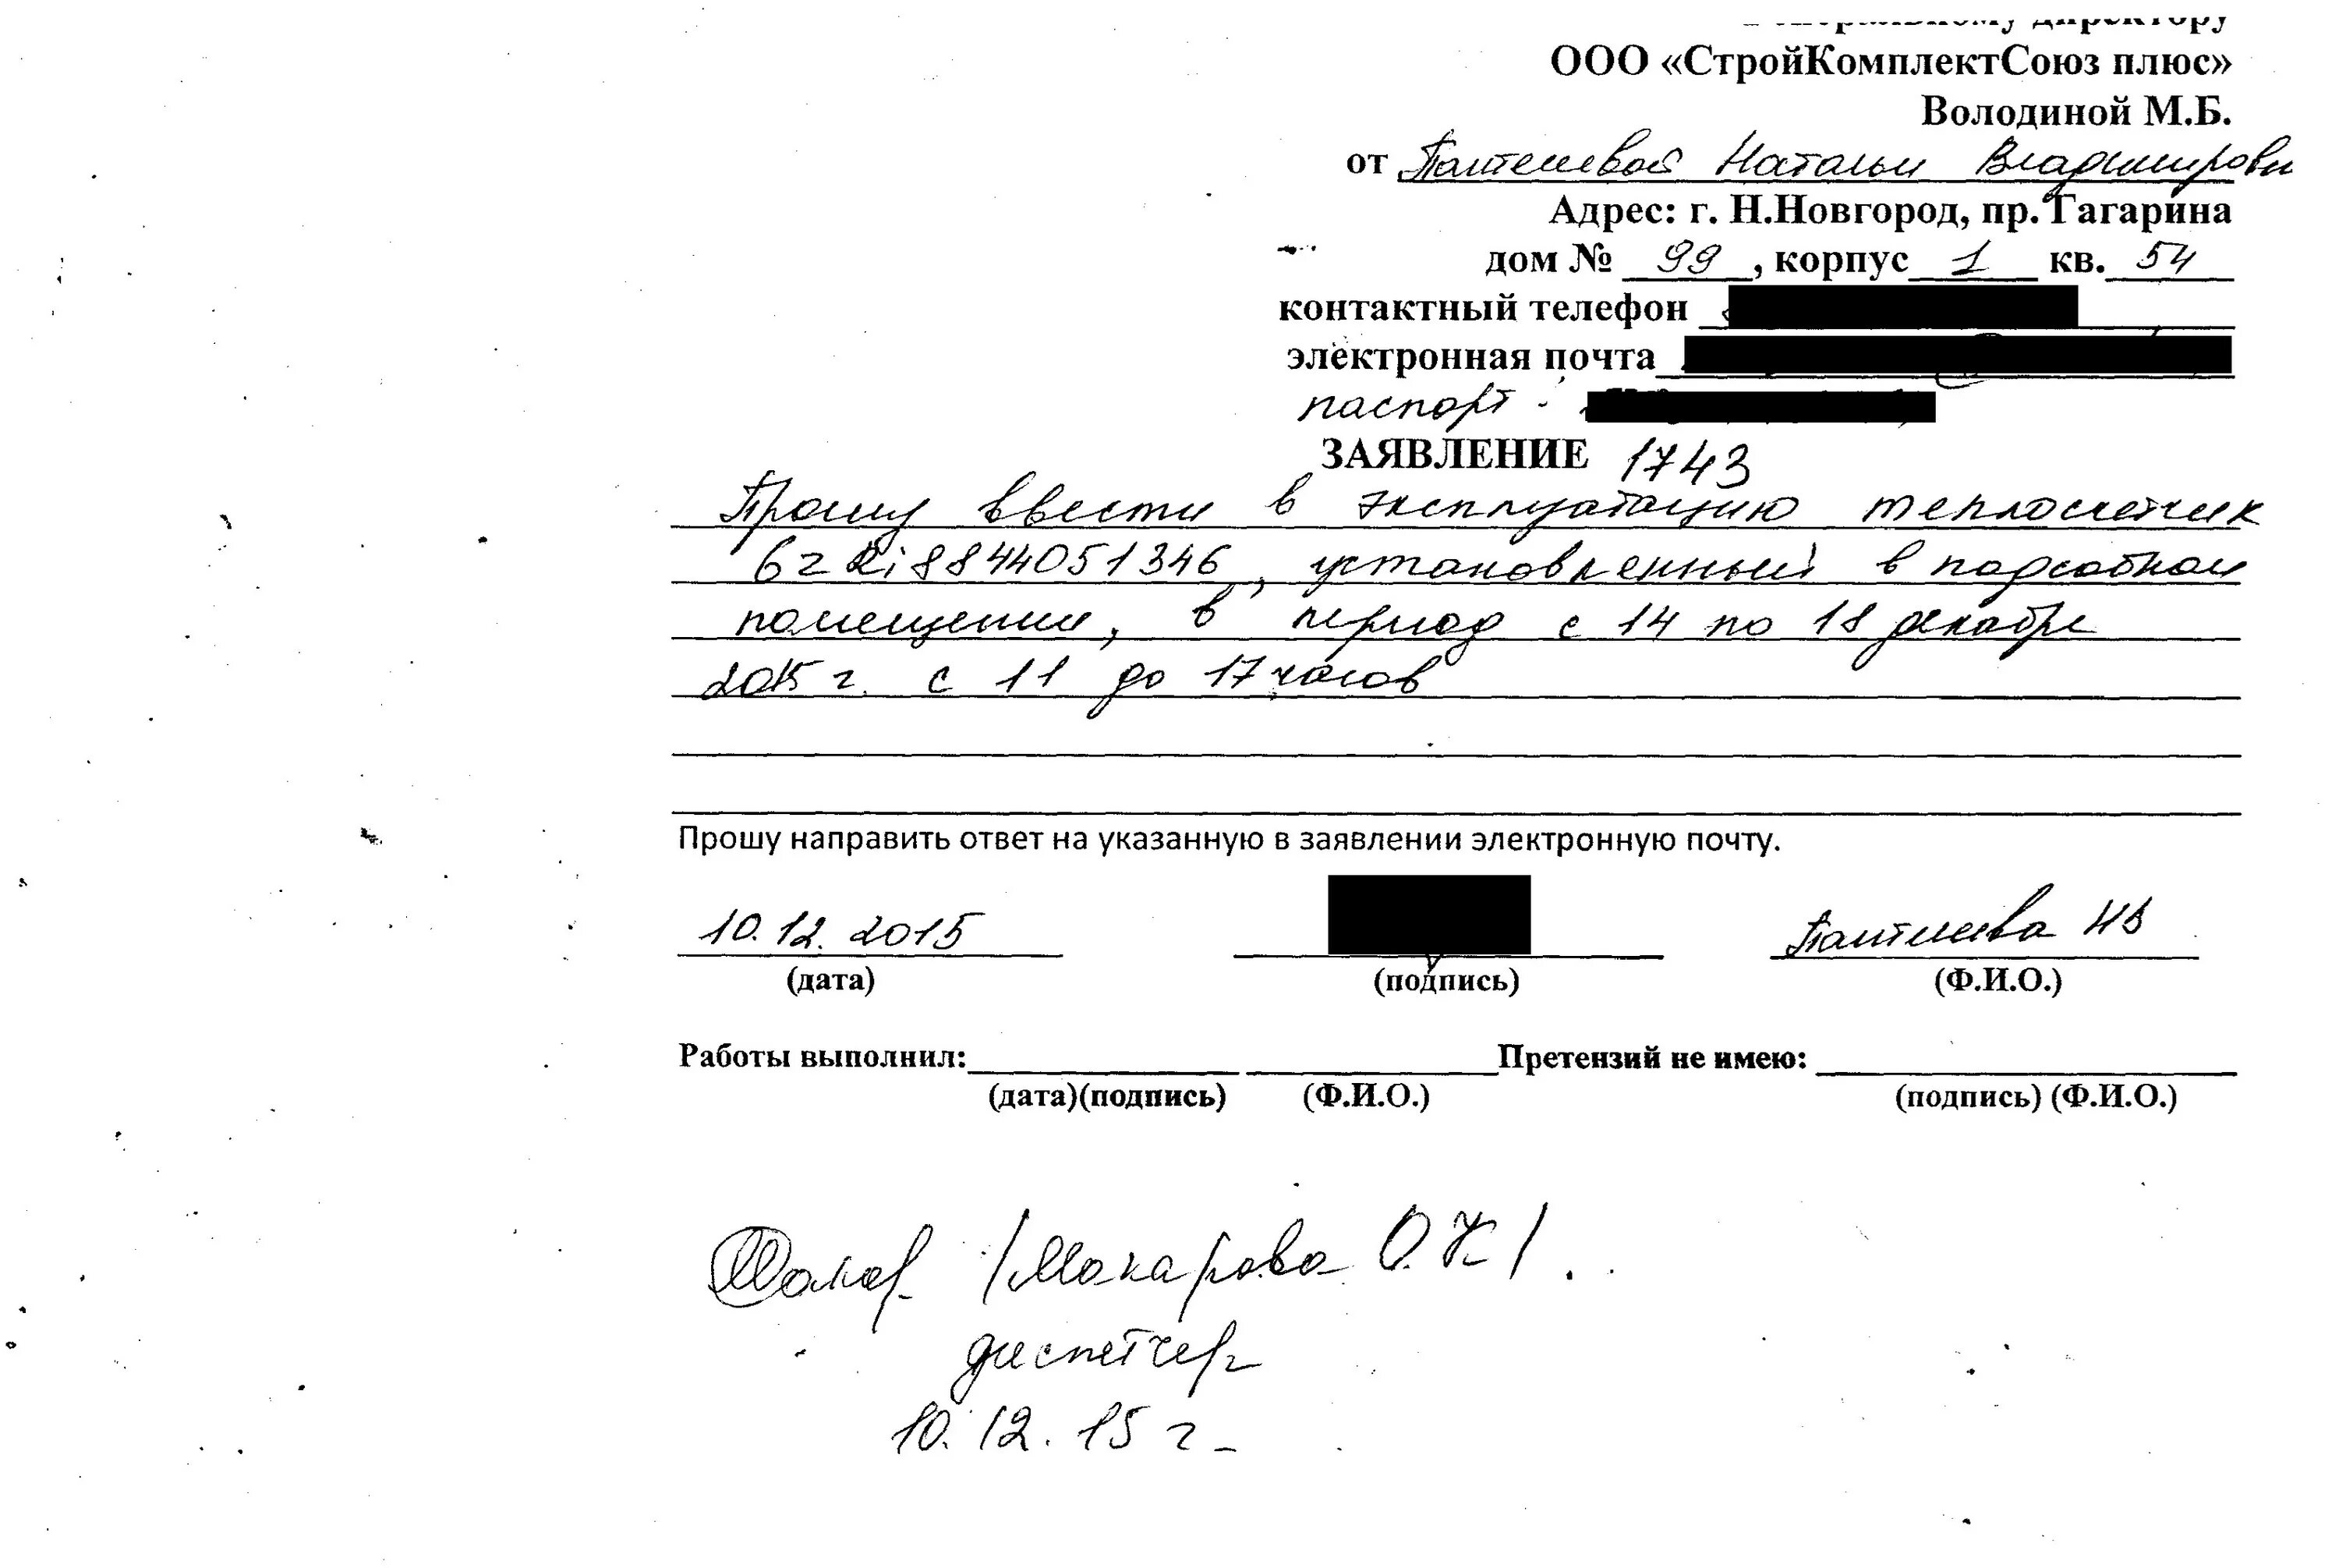 Генеральному директору
ООО «СтройКомплектСоюз плюс»
Володиной М.Б.
от Пантелеевой Натальи Владимировны
Адрес: г. Н.Новгород, пр. Гагарина
дом № 99, корпус 1 кв. 54
контактный телефон
электронная почта
паспорт -
ЗАЯВЛЕНИЕ 1743
Прошу ввести в эксплуатацию теплосчетчик
8844051346, установленный в подсобном
помещении, в период с 14 по 18 декабре
2015 г. с 11 до 17 часов
Прошу направить ответ на указанную в заявлении электронную почту.
10.12.2015
(дата) (подпись) (Ф.И.О.)
Работы выполнил: Претензий не имею:
(дата)(подпись) (Ф.И.О.) (подпись) (Ф.И.О.)
/Макарова О.К/
диспетчер
10.12.15 г.